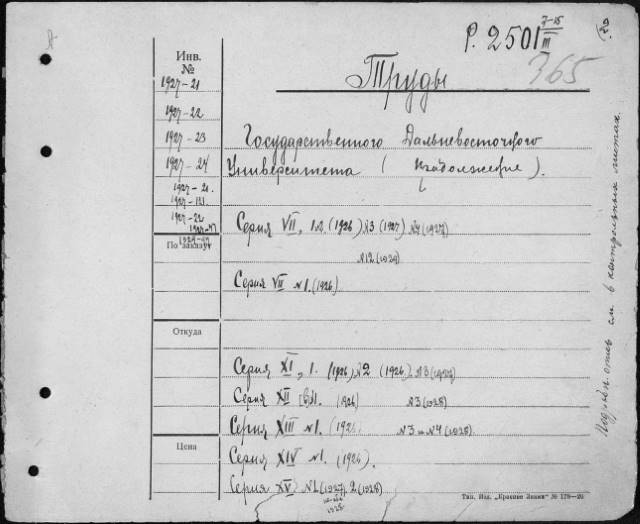 Р. 2501 7-15/III
365
Инв. №
1927-21
1927-22
1927-23
1927-24
1927-21.
1927-121.
1927-22
По заказу
Откуда
Цена
Труды
Государственного Дальневосточного
Университета (продолжение).
Серия VII, 1.2. (1926) №3 (1927) №4 (1927)
№12 (1929)
Серия VII №1. (1926)
Серия XI, 1. (1926) №2 (1926). №3 (1927)
Серия XII №1. (1926) №3 (1928)
Серия XIII №1. (1926) №3-№4 (1928)
Серия XIV №1. (1926).
Серия XV №1 (1927), 2 (1928)
1928
Тип. Изд. „Красное Знамя" № 179—26
см. в контрольных листах.